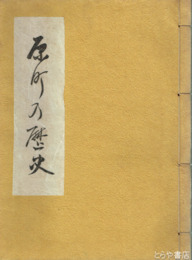 原町乃歴史
とらや書店